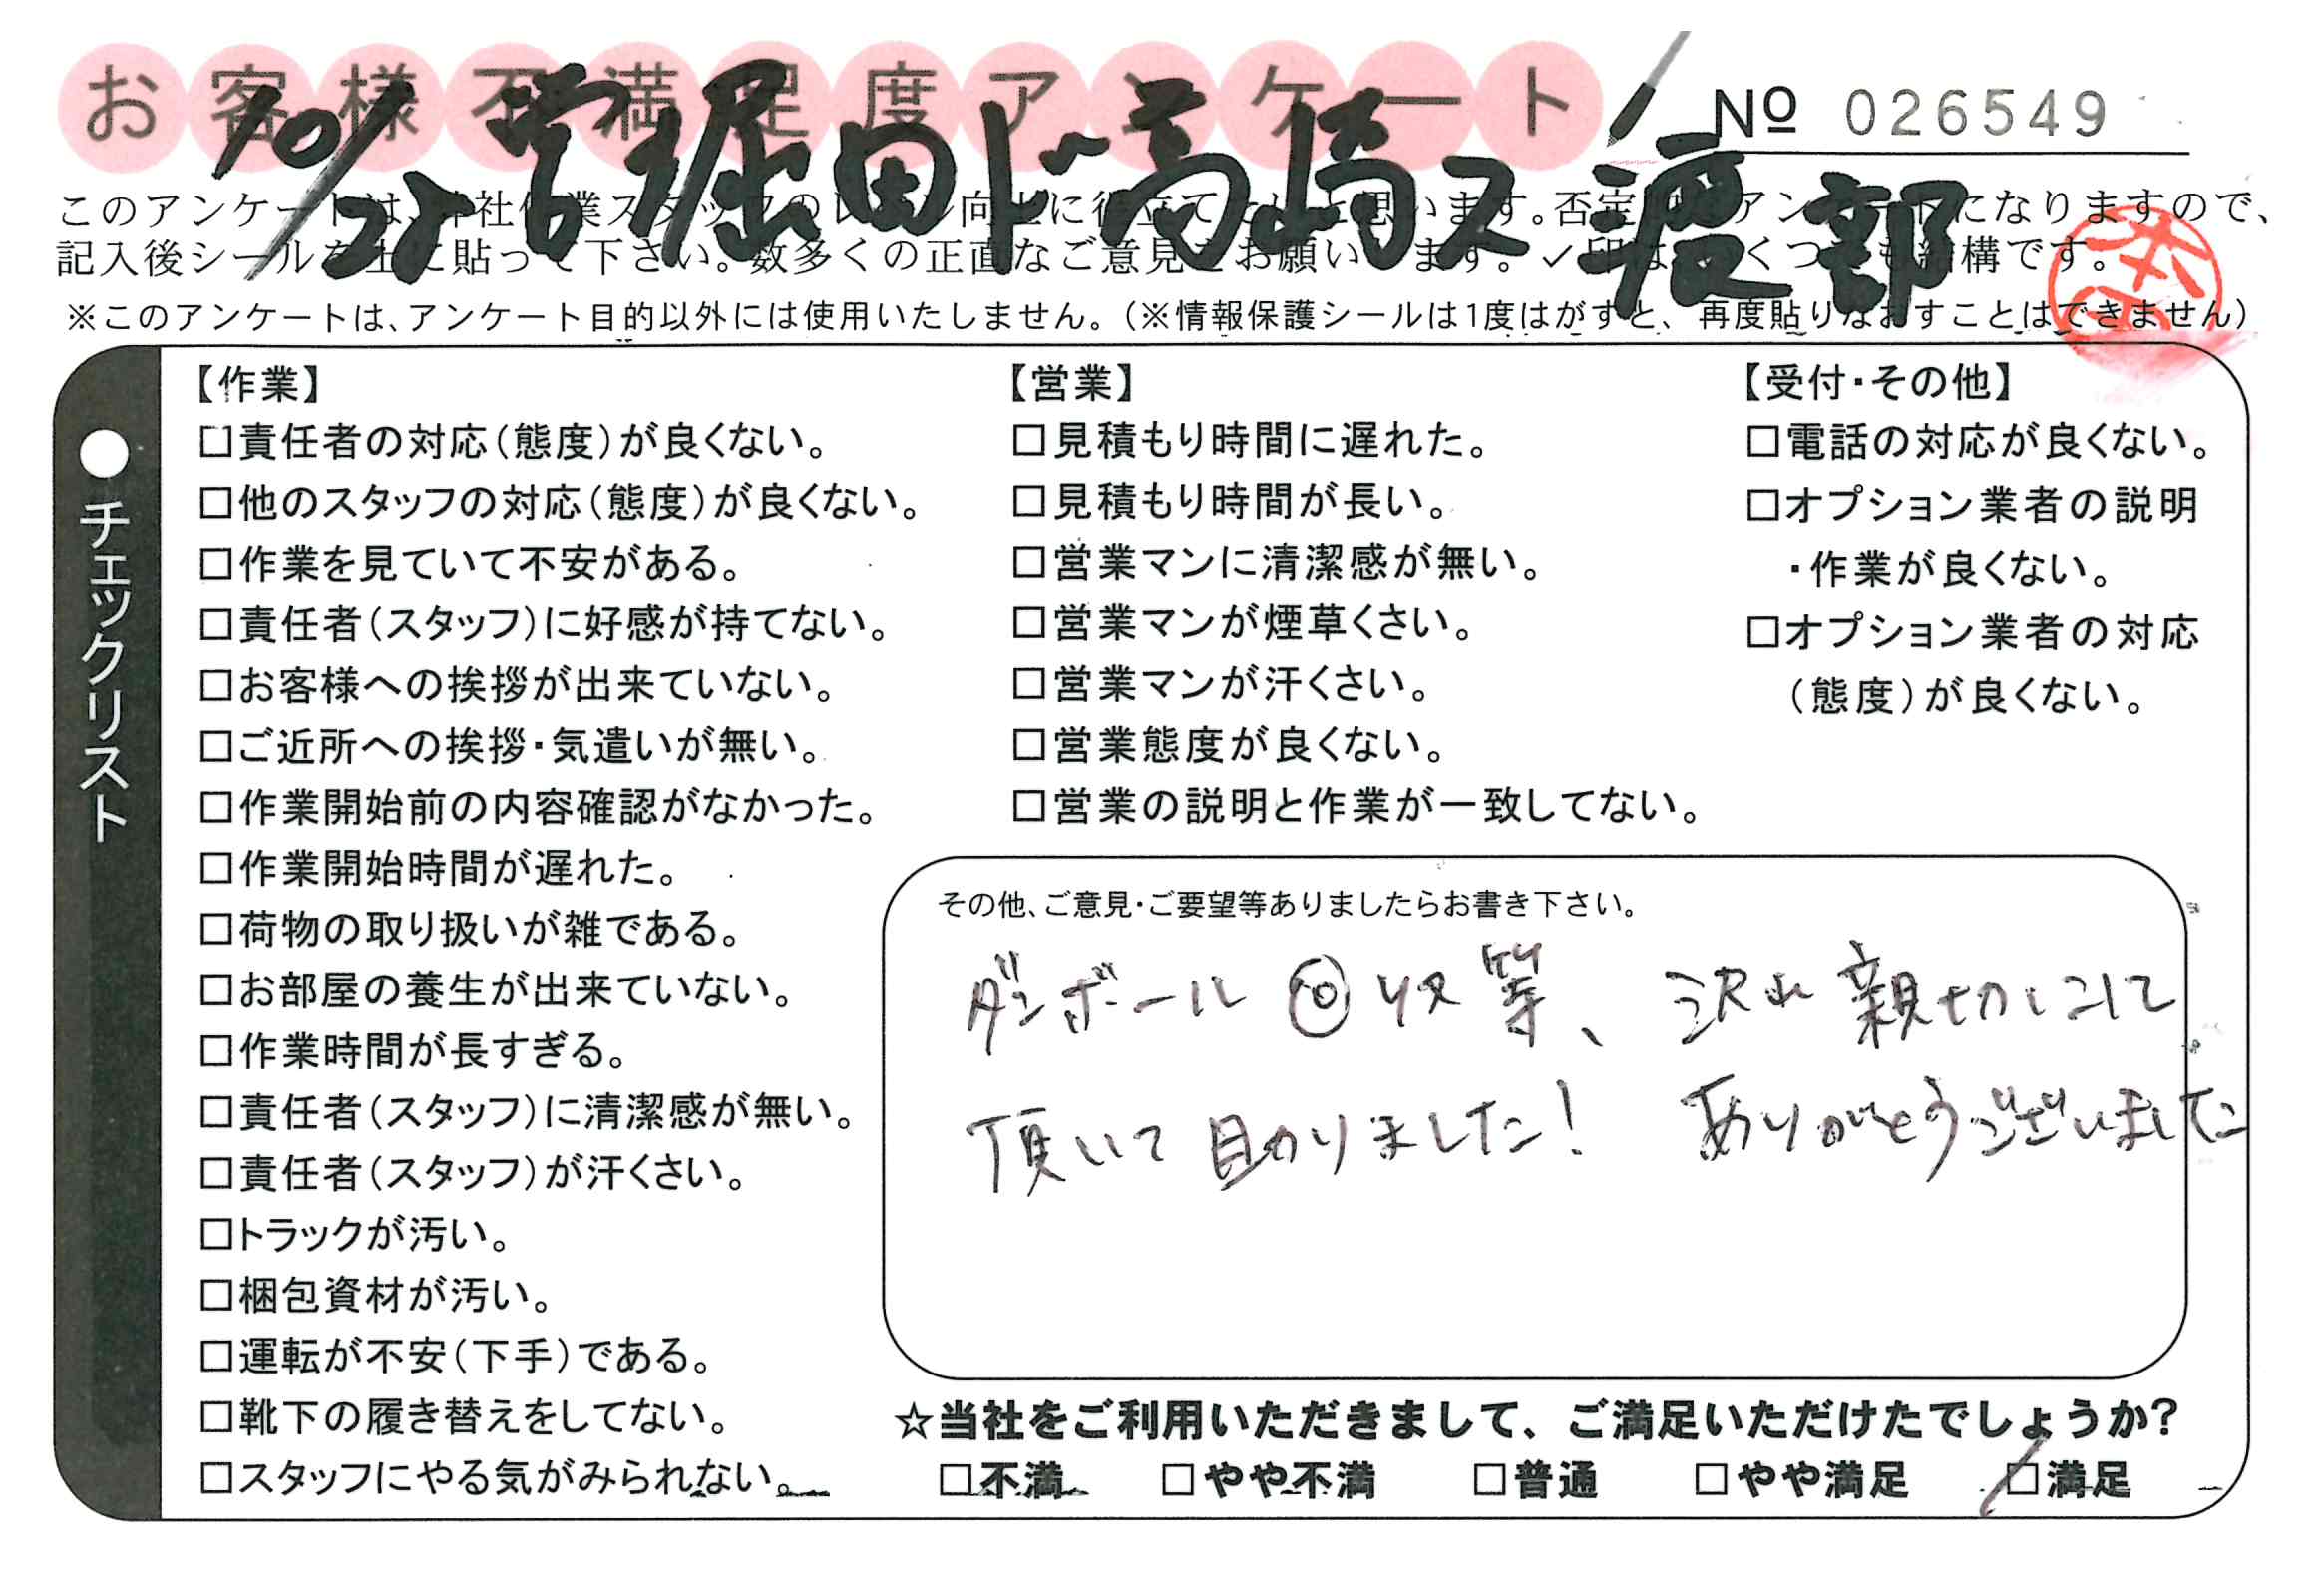 お客様不満足度アンケート
№ 026549
10/28 営堀田ド高崎ス渡部
このアンケートは、弊社作業スタッフのレベル向上に役立てたいと思います。否定的なアンケートになりますので、
記入後シールを上に貼って下さい。数多くの正直なご意見をお願いします。✓印はいくつでも結構です。
※このアンケートは、アンケート目的以外には使用いたしません。(※情報保護シールは1度はがすと、再度貼りなおすことはできません)
●チェックリスト
【作業】
□責任者の対応(態度)が良くない。
□他のスタッフの対応(態度)が良くない。
□作業を見ていて不安がある。
□責任者(スタッフ)に好感が持てない。
□お客様への挨拶が出来ていない。
□ご近所への挨拶・気遣いが無い。
□作業開始前の内容確認がなかった。
□作業開始時間が遅れた。
□荷物の取り扱いが雑である。
□お部屋の養生が出来ていない。
□作業時間が長すぎる。
□責任者(スタッフ)に清潔感が無い。
□責任者(スタッフ)が汗くさい。
□トラックが汚い。
□梱包資材が汚い。
□運転が不安(下手)である。
□靴下の履き替えをしてない。
□スタッフにやる気がみられない。
【営業】
□見積もり時間に遅れた。
□見積もり時間が長い。
□営業マンに清潔感が無い。
□営業マンが煙草くさい。
□営業マンが汗くさい。
□営業態度が良くない。
□営業の説明と作業が一致してない。
【受付・その他】
□電話の対応が良くない。
□オプション業者の説明
・作業が良くない。
□オプション業者の対応
(態度)が良くない。
その他、ご意見・ご要望等ありましたらお書き下さい。
ダンボール回収等、沢山親切にして
頂いて助かりました! ありがとうございました
☆当社をご利用いただきまして、ご満足いただけたでしょうか?
□不満 □やや不満 □普通 □やや満足 □満足